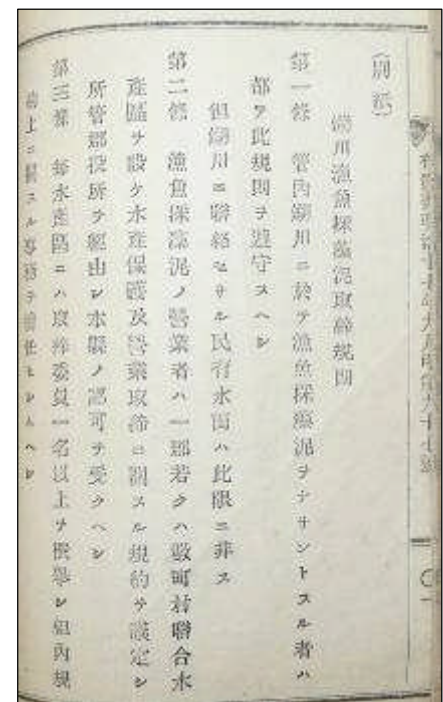 (別紙)
湖川漁魚採藻泥取締規則
第一條 管內湖川ニ於テ漁魚採藻泥ヲナサントスル者ハ
都テ此規則ヲ遵守スヘシ
但湖川ニ聯絡セサル民有水面ハ此限ニ非ス
第二條 漁魚採藻泥ノ營業者ハ一郡若クハ數町村聯合水
產區ヲ設ケ水產保護及營業取締ニ關スル規約ヲ議定シ
所管郡役所ヲ經由シ本縣ノ認可ヲ受クヘシ
第三條 每水產區ニハ取締委員一名以上ヲ撰擧シ組內規
約上ニ關スル事務ヲ擔任セシムヘシ